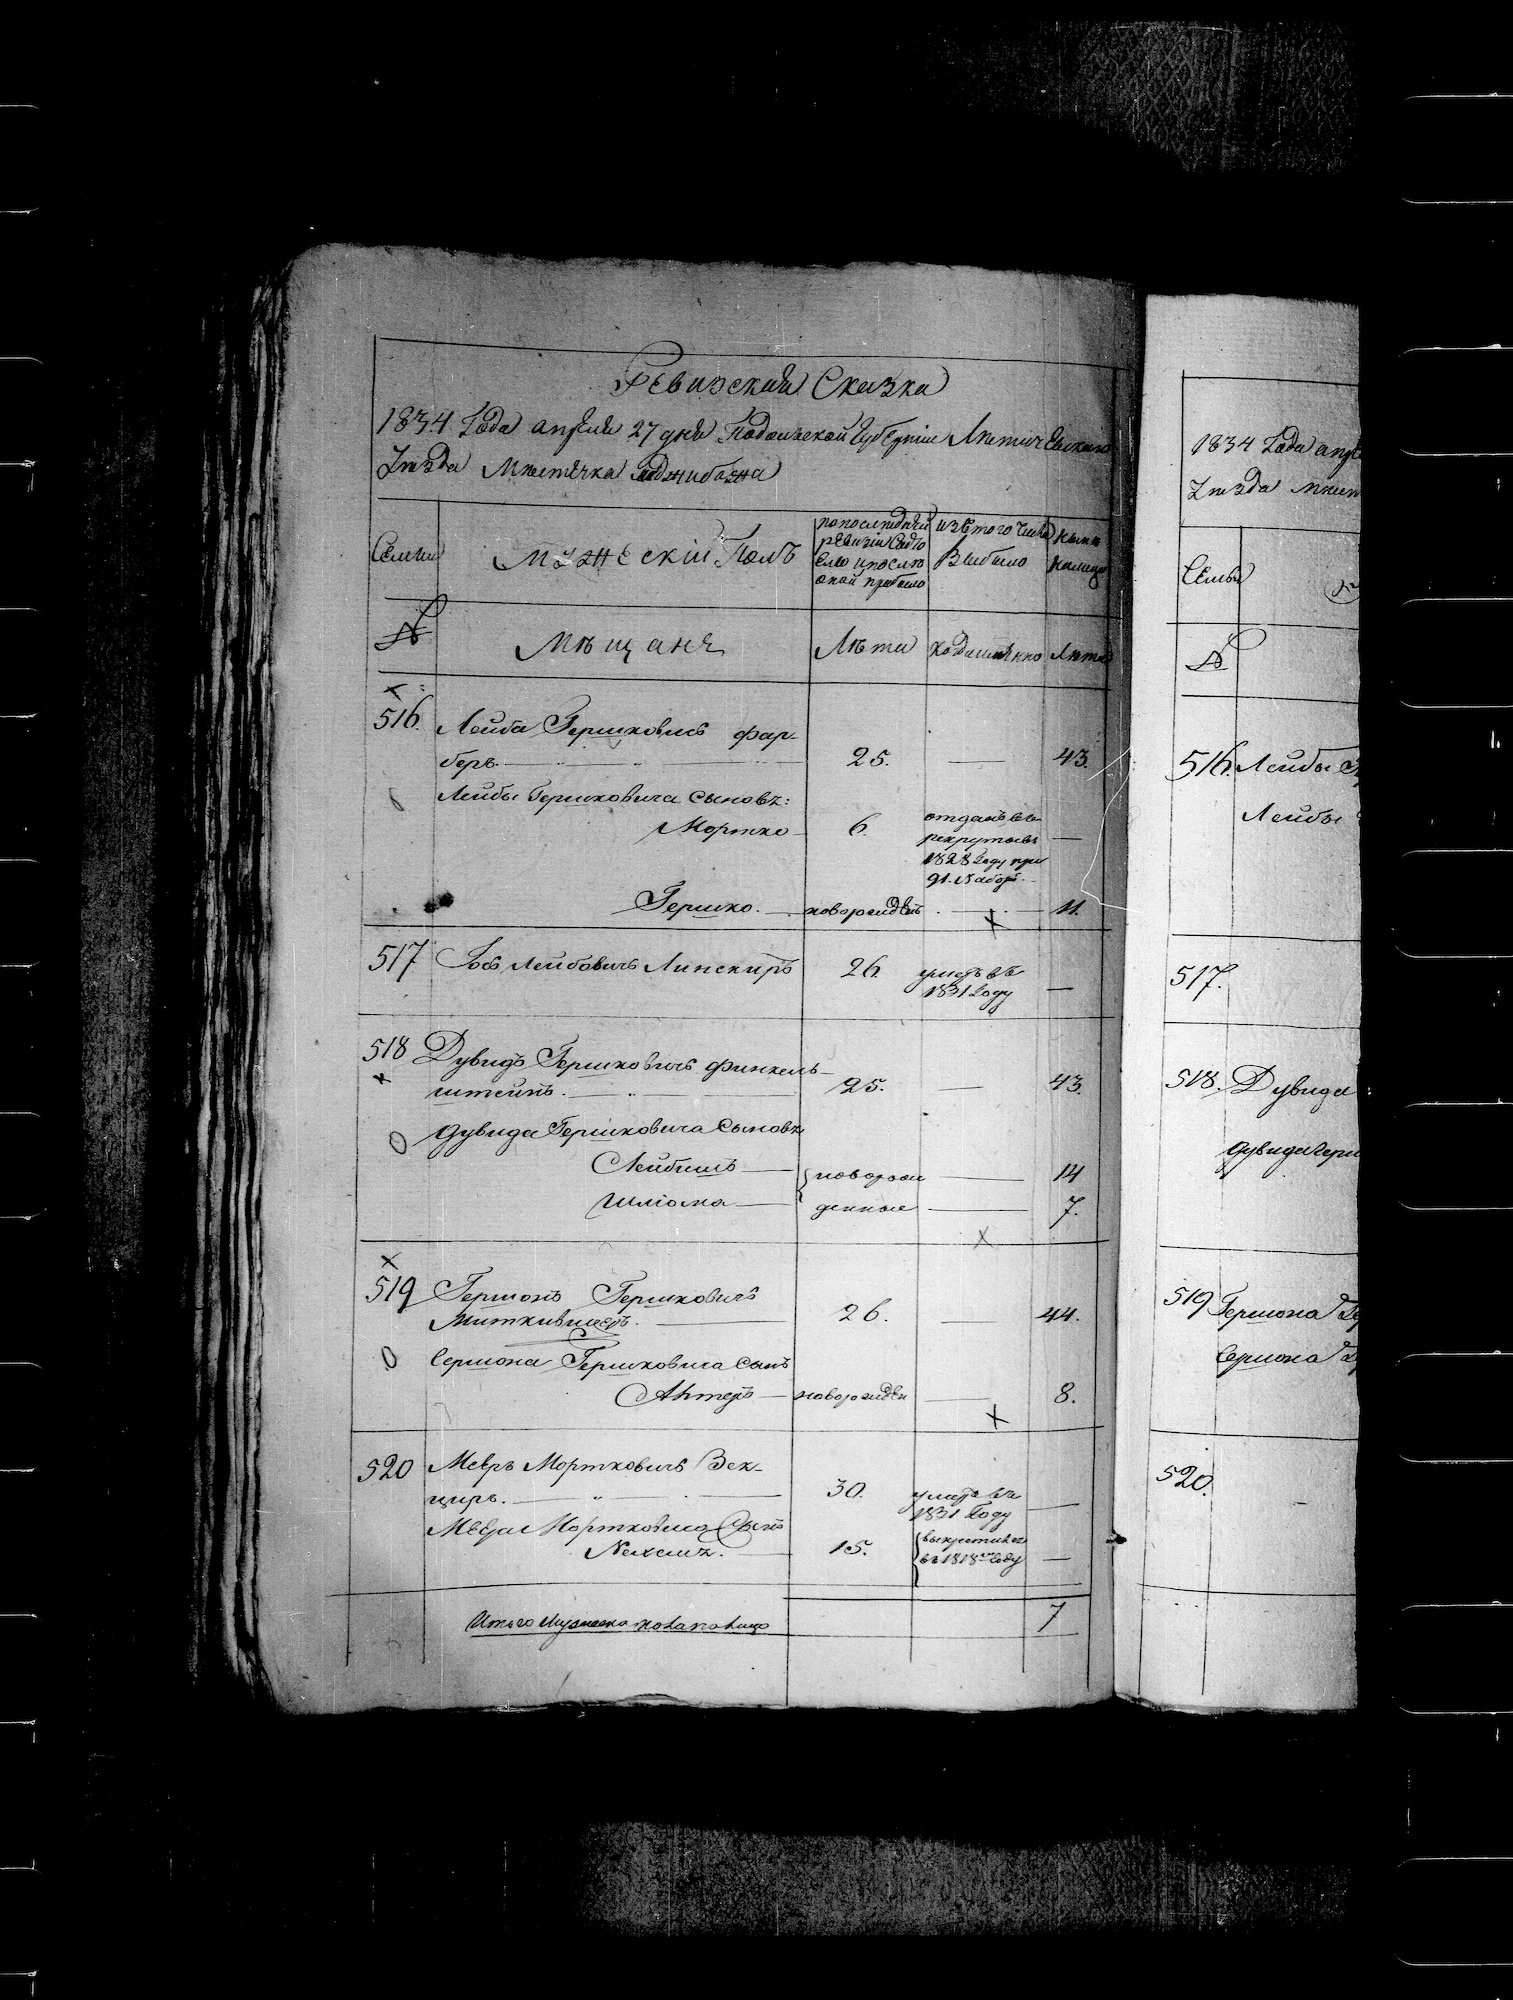 Ревизская Сказка
1834 Года апреля 27 дня Подольской Губернии Летичевскаго
Уезда Местечка Меджибожа
Семьи
Мужескій Полъ
по последней
ревизіи состо
яло и после
оной прибыло
изъ того числа
Выбыло
ныне
налицо
№
Мѣщане
Лѣта
когда именно
Лѣта
516.
Лейба Гершковичъ фар-
беръ.
25.
43.
Лейбы Гершковича сыновъ:
Мортко
6.
отданъ въ
рекруты въ
1828 Году при
91. Наборе
Гершко.
новорожден
11.
517
Іось Лейбовичъ Линскиръ
26.
умеръ въ
1831 Году
518
Дувидъ Гершковичъ финкель-
штейнъ.
25.
43.
Дувида Гершковича сыновъ
Лейбишъ
новорож
14
Шлиома
денные
7.
519
Гершонъ Гершковичъ
26.
44.
Гершона Гершковича сынъ
новорожден
8.
520
Мееръ Мортковичъ Век-
циръ.
30.
умеръ въ
1831 Году
Меера Мортковича Сынъ
Нехемъ.
15.
выкрестился
въ 1818 Году
Итого мужеска пола налицо
7
1834 Года апре
Уезда мест
Семьи
№
516. Лейбы
Лейбы
517.
518. Дувида
Дувида Герш
519 Гершона
Гершона
520.